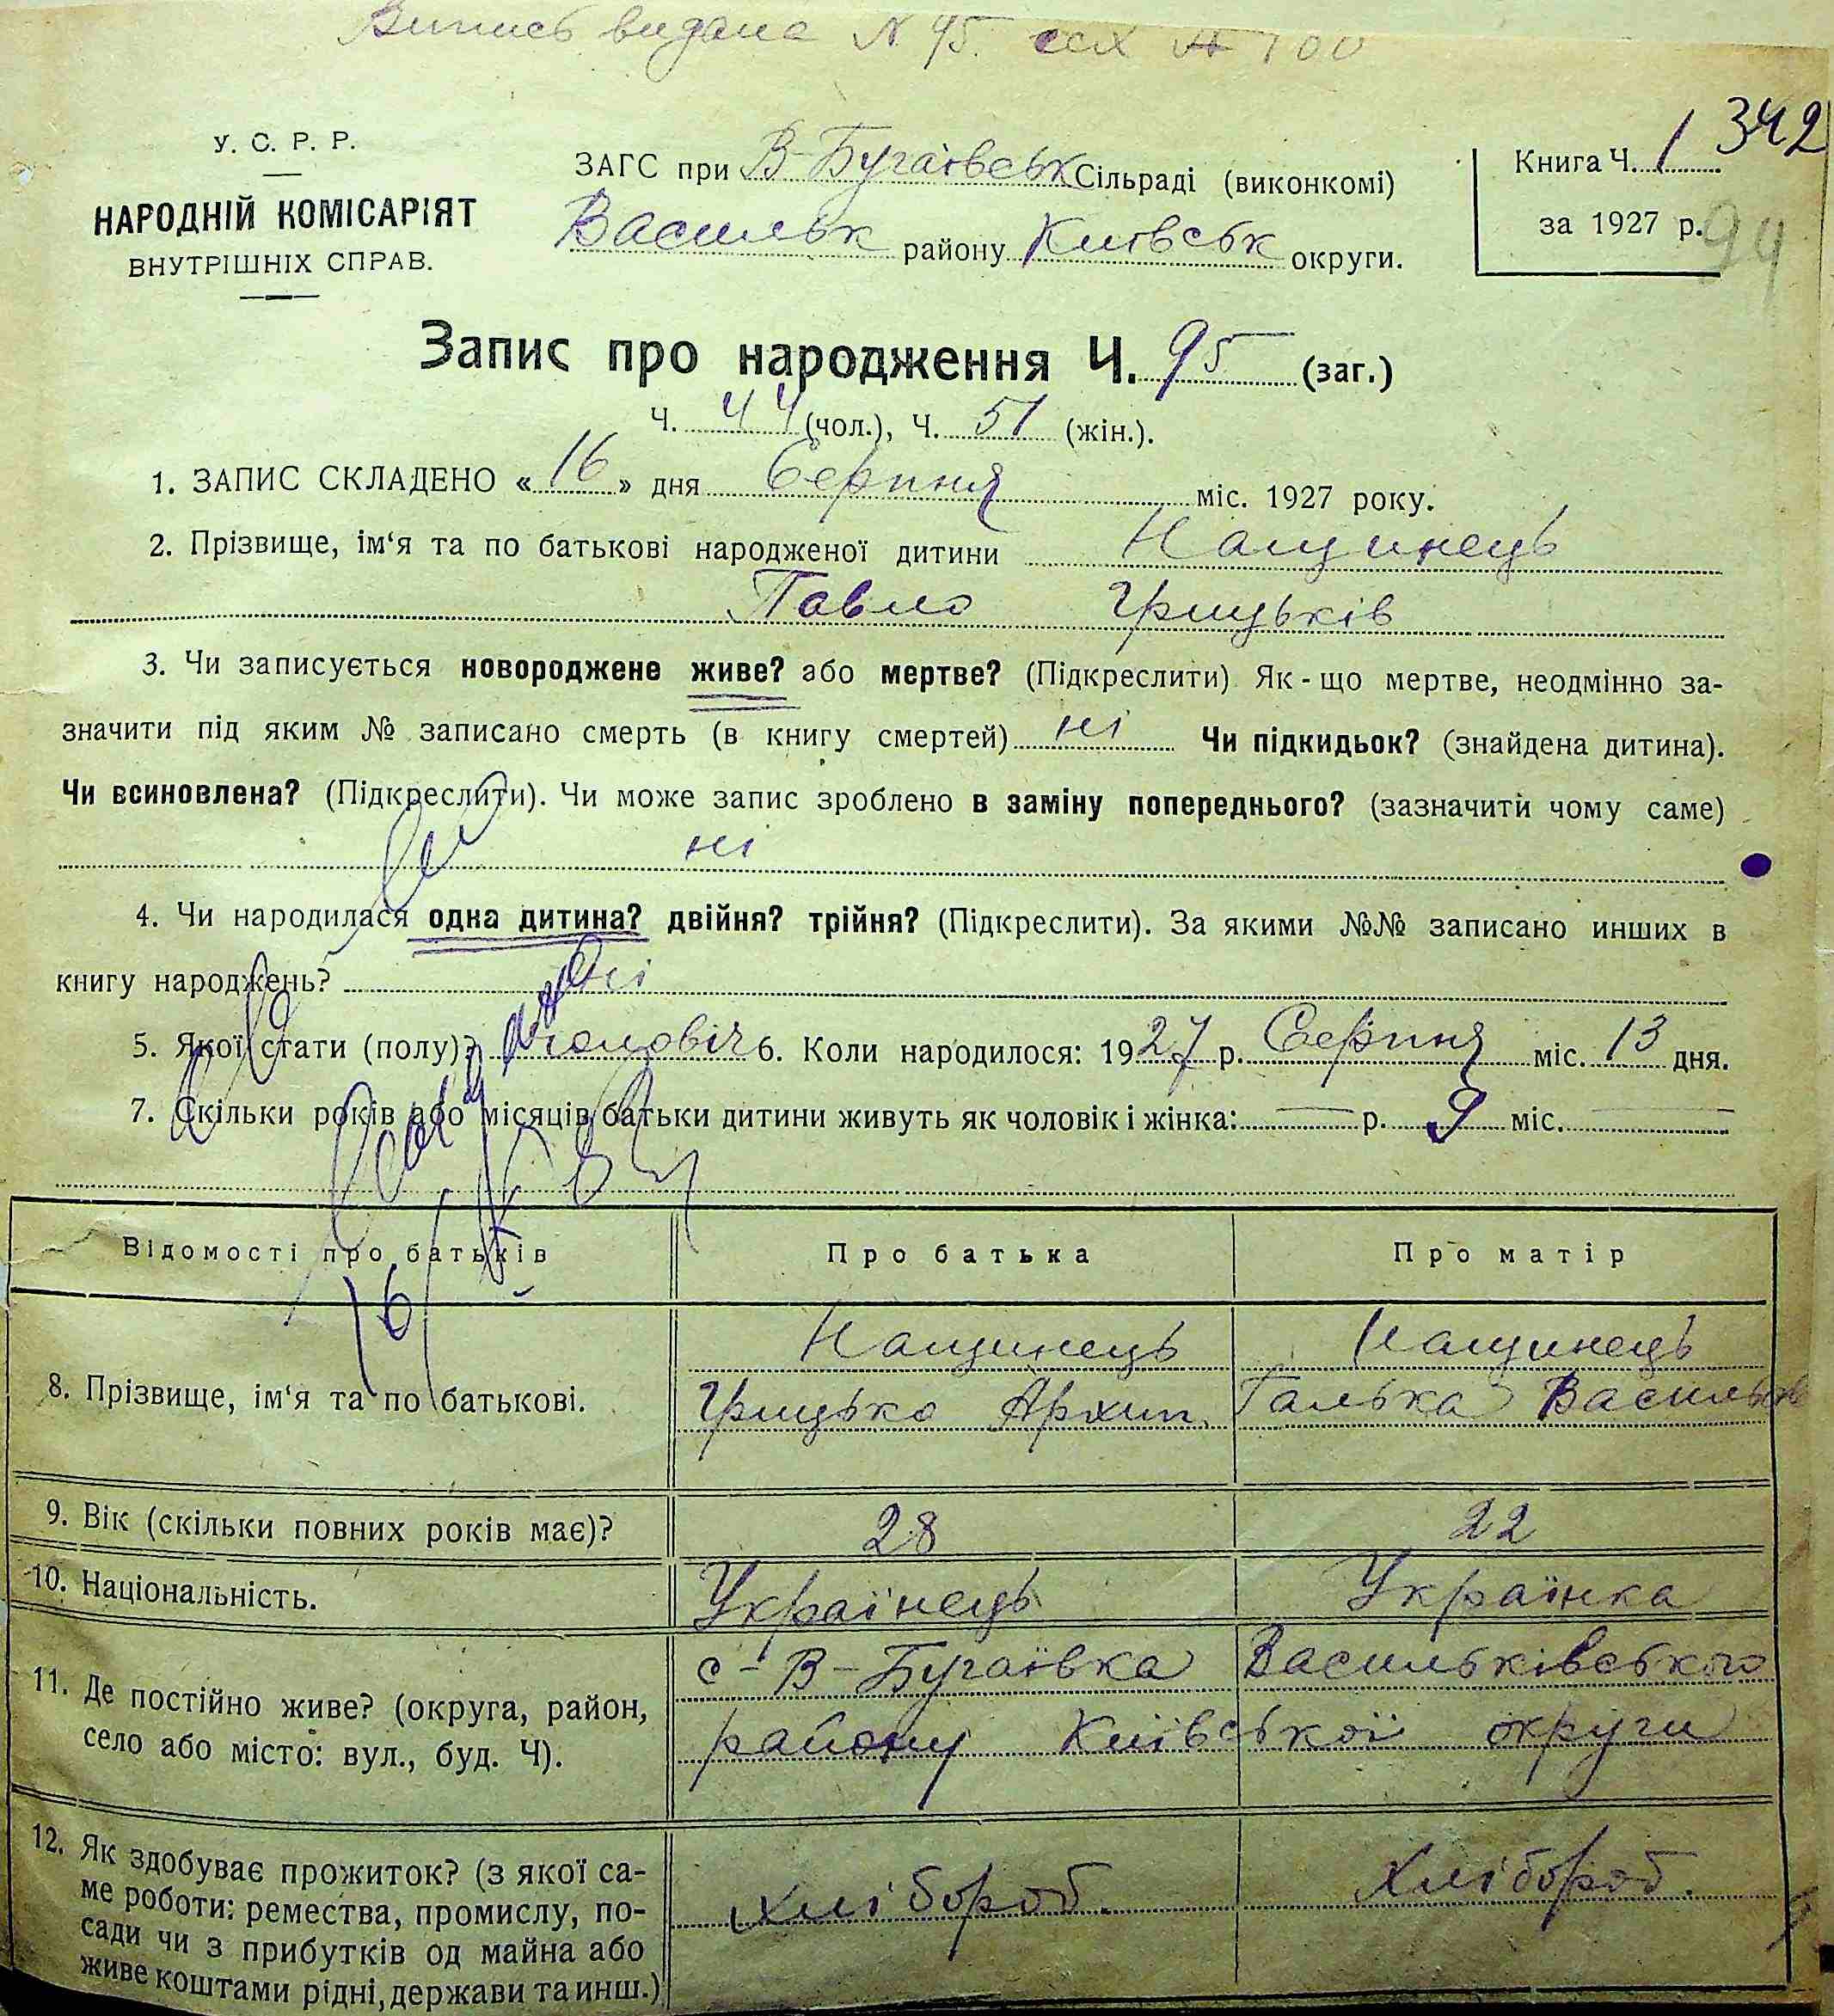 Выпись видана N 95.
342
У. С. Р. Р.
НАРОДНІЙ КОМІСАРІЯТ
ВНУТРІШНІХ СПРАВ.
ЗАГС при В-Бугаївськ Сільраді (виконкомі)
Васильк району Київськ округи.
Книга Ч. 1
за 1927 р.
94
Запис про народження Ч. 95 (заг.)
Ч. 44 (чол.), Ч. 51 (жін.).
1. ЗАПИС СКЛАДЕНО «16» дня Серпня міс. 1927 року.
2. Прізвище, ім‘я та по батькові народженої дитини Нащинець
Павло Грицьків
3. Чи записується новороджене живе? або мертве? (Підкреслити) Як-що мертве, неодмінно за-
значити під яким № записано смерть (в книгу смертей) ні Чи підкидьок? (знайдена дитина).
Чи всиновлена? (Підкреслити). Чи може запис зроблено в заміну попереднього? (зазначити чому саме)
ні
4. Чи народилася одна дитина? двійня? трійня? (Підкреслити). За якими №№ записано инших в
книгу народжень? ні
5. Якої стати (полу)? чоловіч 6. Коли народилося: 1927 р. Серпня міс. 13 дня.
7. Скільки років або місяців батьки дитини живуть як чоловік і жінка: — р. 9 міс. —
Відомості про батьків Про батька Про матір
8. Прізвище, ім‘я та по батькові.
Нащинець Нащинець
Грицько Архип. Галька Васильів
9. Вік (скільки повних років має)? 28 22
10. Національність. Українець Українка
11. Де постійно живе? (округа, район,
село або місто: вул., буд. Ч).
с-В-Бугаївка Васильківського
району Київської округи
12. Як здобуває прожиток? (з якої са-
ме роботи: ремества, промислу, по-
сади чи з прибутків од майна або
живе коштами рідні, держави та инш.)
хлібороб. Хлібороб.